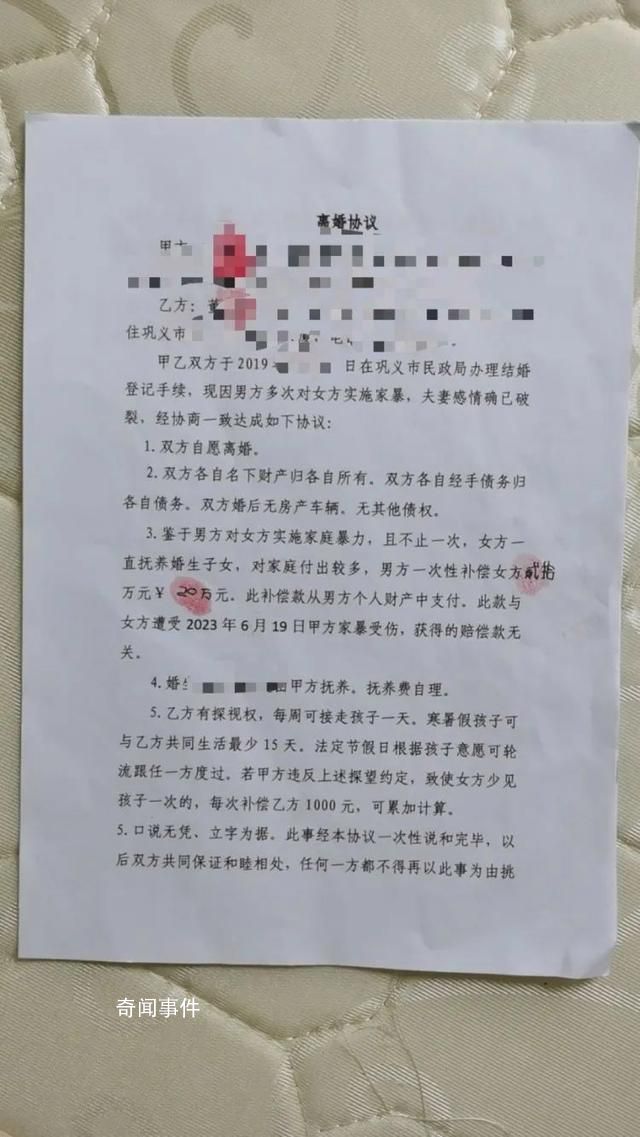 离婚协议
甲方
乙方：董
住巩义市
甲乙双方于2019 日在巩义市民政局办理结婚
登记手续，现因男方多次对女方实施家暴，夫妻感情确已破
裂，经协商一致达成如下协议：
1.双方自愿离婚。
2.双方各自名下财产归各自所有。双方各自经手债务归
各自债务。双方婚后无房产车辆。无其他债权。
3.鉴于男方对女方实施家庭暴力，且不止一次，女方一
直抚养婚生子女，对家庭付出较多，男方一次性补偿女方贰拾
万元￥20万元。此补偿款从男方个人财产中支付。此款与
女方遭受2023年6月19日甲方家暴受伤，获得的赔偿款无
关。
4.婚 由甲方抚养。抚养费自理。
5.乙方有探视权，每周可接走孩子一天。寒暑假孩子可
与乙方共同生活最少15天。法定节假日根据孩子意愿可轮
流跟任一方度过。若甲方违反上述探望约定，致使女方少见
孩子一次的，每次补偿乙方1000元，可累加计算。
5.口说无凭、立字为据。此事经本协议一次性说和完毕，以
后双方共同保证和睦相处，任何一方都不得再以此事为由挑
奇闻事件